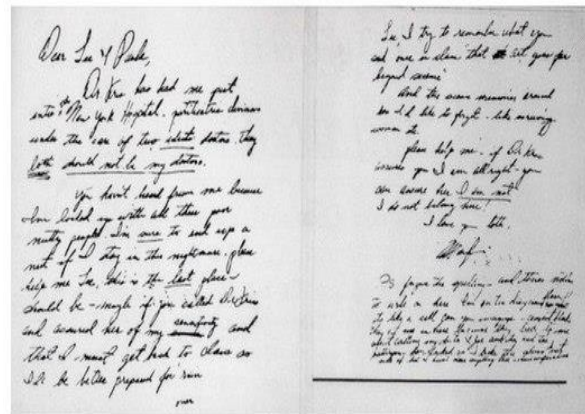 Dear Lee & Paula,
Dr. Kris has had me put
into the New York Hospital - pschiatric division
under the care of two idiot doctors. they
both should not be my doctors.
You haven't heard from me because
I'm locked up with all these poor
nutty people. I'm sure to end up a
nut if I stay in this nightmare. please
help me Lee, this is the last place I
should be - maybe if you called Dr. Kris
and assured her of my sensitivity and
that I must get back to class so
I'll be better prepared for "rain"
over
Lee, I try to remember what you
said once in class "that art goes far
beyond science"
And the scary memories around
me I'd like to forget - like screaming
women etc.
please help me - if Dr. Kris
assures you I am all right - you
can assure her I am not!
I do not belong here!
I love you both.
Marilyn
P.S. forgive the spelling - and theres nothing
to write on here. I'm on the dangerous floor!
its like a cell can you imagine - cement blocks
they put me in here because they lied to me
about calling my doctor & Joe and they had the
bathroom door locked so I broke the glass